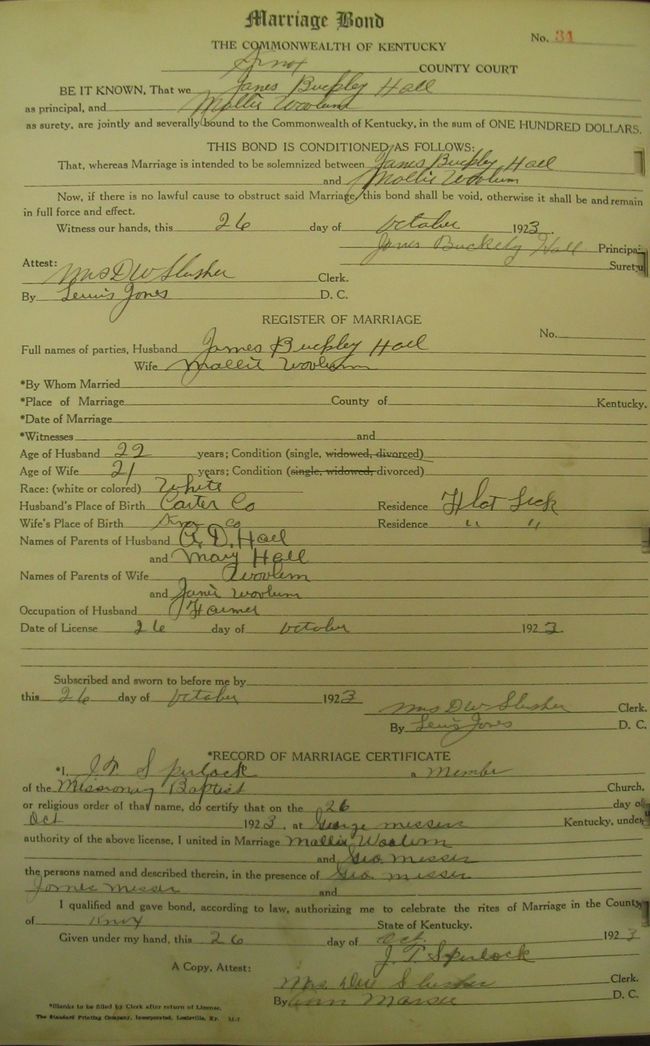 Marriage Bond
No. 31
THE COMMONWEALTH OF KENTUCKY
Knox COUNTY COURT
BE IT KNOWN, That we James Buckley Hall
as principal, and Mollie Woolum
as surety, are jointly and severally bound to the Commonwealth of Kentucky, in the sum of ONE HUNDRED DOLLARS.
THIS BOND IS CONDITIONED AS FOLLOWS:
That, whereas Marriage is intended to be solemnized between James Buckley Hall
and Mollie Woolum
Now, if there is no lawful cause to obstruct said Marriage, this bond shall be void, otherwise it shall be and remain
in full force and effect.
Witness our hands, this 26 day of October 1923.
James Buckely Hall Principal
Surety
Attest:
Mrs D W Slusher Clerk.
By Lewis Jones D. C.
REGISTER OF MARRIAGE
No.
Full names of parties, Husband James Buckley Hall
Wife Mallie Woolum
*By Whom Married
*Place of Marriage County of Kentucky.
*Date of Marriage
*Witnesses and
Age of Husband 22 years; Condition (single, widowed, divorced)
Age of Wife 21 years; Condition (single, widowed, divorced)
Race: (white or colored) White
Husband's Place of Birth Carter Co Residence Flat Lick
Wife's Place of Birth Knox Co Residence " "
Names of Parents of Husband A. D. Hall
and Mary Hall
Names of Parents of Wife Woolum
and Janie Woolum
Occupation of Husband Farmer
Date of License 26 day of October 1923.
Subscribed and sworn to before me by
this 26 day of October 1923
Mrs D W Slusher Clerk.
By Lewis Jones D. C.
*RECORD OF MARRIAGE CERTIFICATE
*I, J. T. Spurlock a Member
of the Missionary Baptist Church,
or religious order of that name, do certify that on the 26 day of
Oct 1923, at George Messers Kentucky, under
authority of the above license, I united in Marriage Mallie Woolum
and Geo. Messer
the persons named and described therein, in the presence of Geo. Messer
James Messer and
I qualified and gave bond, according to law, authorizing me to celebrate the rites of Marriage in the County
of Knox State of Kentucky.
Given under my hand, this 26 day of Oct. 1923
J. T. Spurlock
A Copy, Attest:
Mrs. Slusher Clerk.
By D. C.
*Blanks to be filled by Clerk after return of License.
The Standard Printing Company, Incorporated, Louisville, Ky.